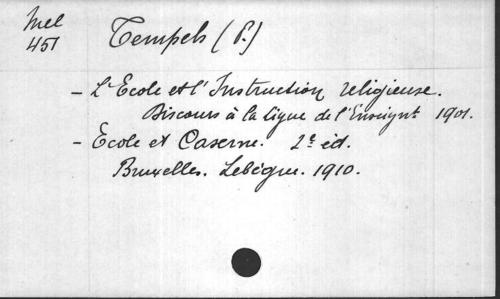 Mel
451
Tempels (P.)
- L'Ecole et l'Instruction religieuse.
Discours à la ligue de l'Enseignt 1901.
- Ecole et Caserne. 2e éd.
Bruxelles. Lebègue. 1910.